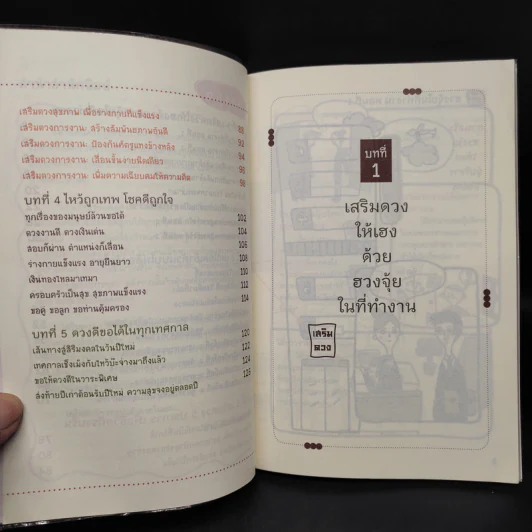 เสริมดวงสุขภาพ เพื่อร่างกายที่แข็งแรง
เสริมดวงการงาน: สร้างสัมพันธภาพอันดี
เสริมดวงการงาน: ป้องกันศัตรูแทงข้างหลัง 92
เสริมดวงการงาน: เลื่อนขั้นง่ายนิดเดียว 94
เสริมดวงการงาน: เพิ่มความเฉียบคมให้ความคิด
บทที่ 4 ไหว้ถูกเทพ โชคดีถูกใจ
ทุกเรื่องของมนุษย์ล้วนขอได้ 102
ดวงงานดี ดวงเงินเด่น 104
สอบก็ผ่าน ตำแหน่งก็เลื่อน 106
ร่างกายแข็งแรง อายุยืนยาว 108
เงินทองไหลมาเทมา 110
ครอบครัวเป็นสุข สุขภาพแข็งแรง 112
ขอคู่ ขอลูก ขอท่านคุ้มครอง 114
บทที่ 5 ดวงดีขอได้ในทุกเทศกาล
เส้นทางสู่สิริมงคลในวันปีใหม่ 120
เทศกาลเช็งเม้งกับไหว้บ๊ะจ่างมาถึงแล้ว 122
ขอให้ดวงดีในวาระพิเศษ 124
ส่งท้ายปีเก่าต้อนรับปีใหม่ ความสุขจงอยู่ตลอดปี 126
บทที่
1
เสริมดวง
ให้เฮง
ด้วย
ฮวงจุ้ย
ในที่ทำงาน
เสริม
ดวง